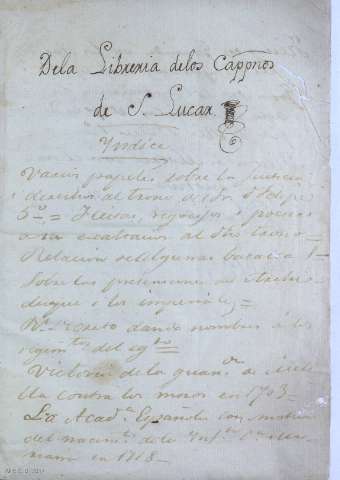 Dela Libreria delos Cappnos
de S. Lucar
Yndice
Varios papeles sobre la justicia
derechos al trono de Dn Felipe
5º = Fiestas, regocijos e poesias
a su exaltacion al dho trono
Relacion
sobre las pretensiones del Archi
duque o los imperiales =
Rl Decreto dando nombres à los
regimtos del egto
Victoria de la guarnn de Meli
lla contra los moros en 1703
La Acada Española con motivo
del nacimto de la Infta Da Ma
riana en 1718